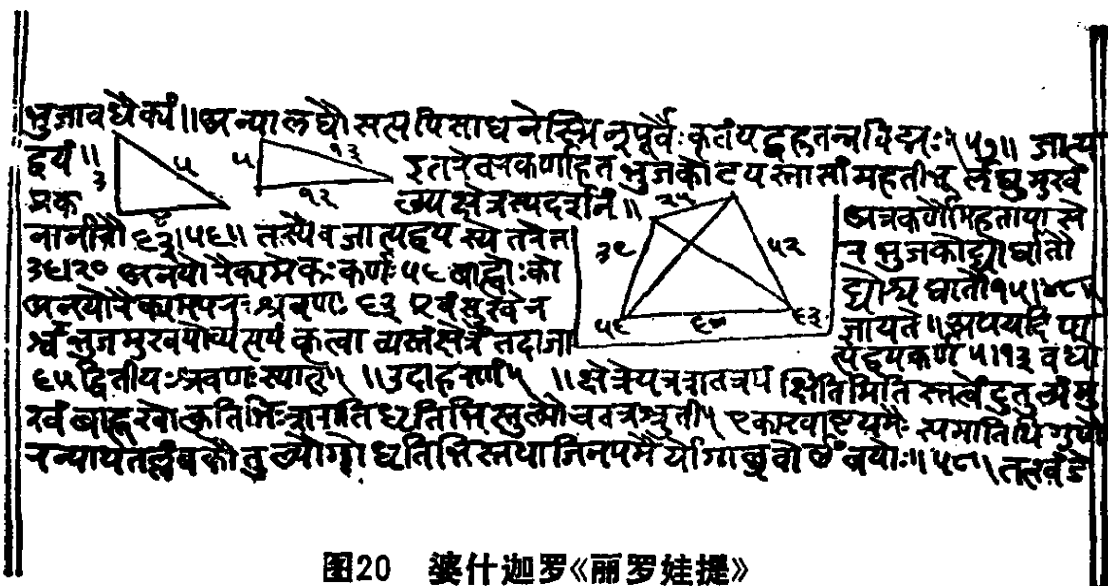 भुजावधैक्यं॥अन्यालघौसत्यपिसाधनेस्मिन्पूर्वैःकृतंयद्गुरुतन्नविद्मः॥५७॥ जात्य
द्वयं॥ ३ ५ ५ १३ १२ इतरेतरकर्णाहत भुजकोटयस्तासांमहतीभू र्लघुमुखं
प्रक ४ ल्प्यक्षेत्रस्यदर्शनं॥ २५ अत्रकर्णौमहतायासे
नानीतौ ६३।५६॥ तस्यैव जात्यद्वयस्ये तरेत ३९ ५२ र भुजकोट्योर्घातौ
३६।२० अनयोरैक्यमेकःकर्णः५६ बाह्वोःको ट्योश्चघातौ१५।४८
अनयोरैक्यमपरःश्रवणः ६३ एवंसुखेन ५६ ६० ६३ जायते॥अथयदि पा
र्श्वभुजमुखयोर्व्यत्ययं कृत्वा न्यस्तंक्षेत्रं तदाजा त्यद्वयकर्ण ५।१३ वधो
६५द्वितीयःश्रवणःस्यात्॥ ॥उदाहरणं॥ ॥क्षेत्रेयत्रशतत्रयं क्षितिमितिस्तत्वेंदुतुल्यंमु
खं बाहूखोत्कृतिभिःशरातिधृतिभिस्तुल्यौचतत्रश्रुती। एकाखाष्टयमैः समातिथिगुणै
रन्याथतल्लंबकौतुल्यौगोधृतिभिस्तथाजिनयमैर्योगाच्छ्रवोर्लंबयोः॥५८॥तत्खंडे
图20 婆什迦罗《丽罗娃提》